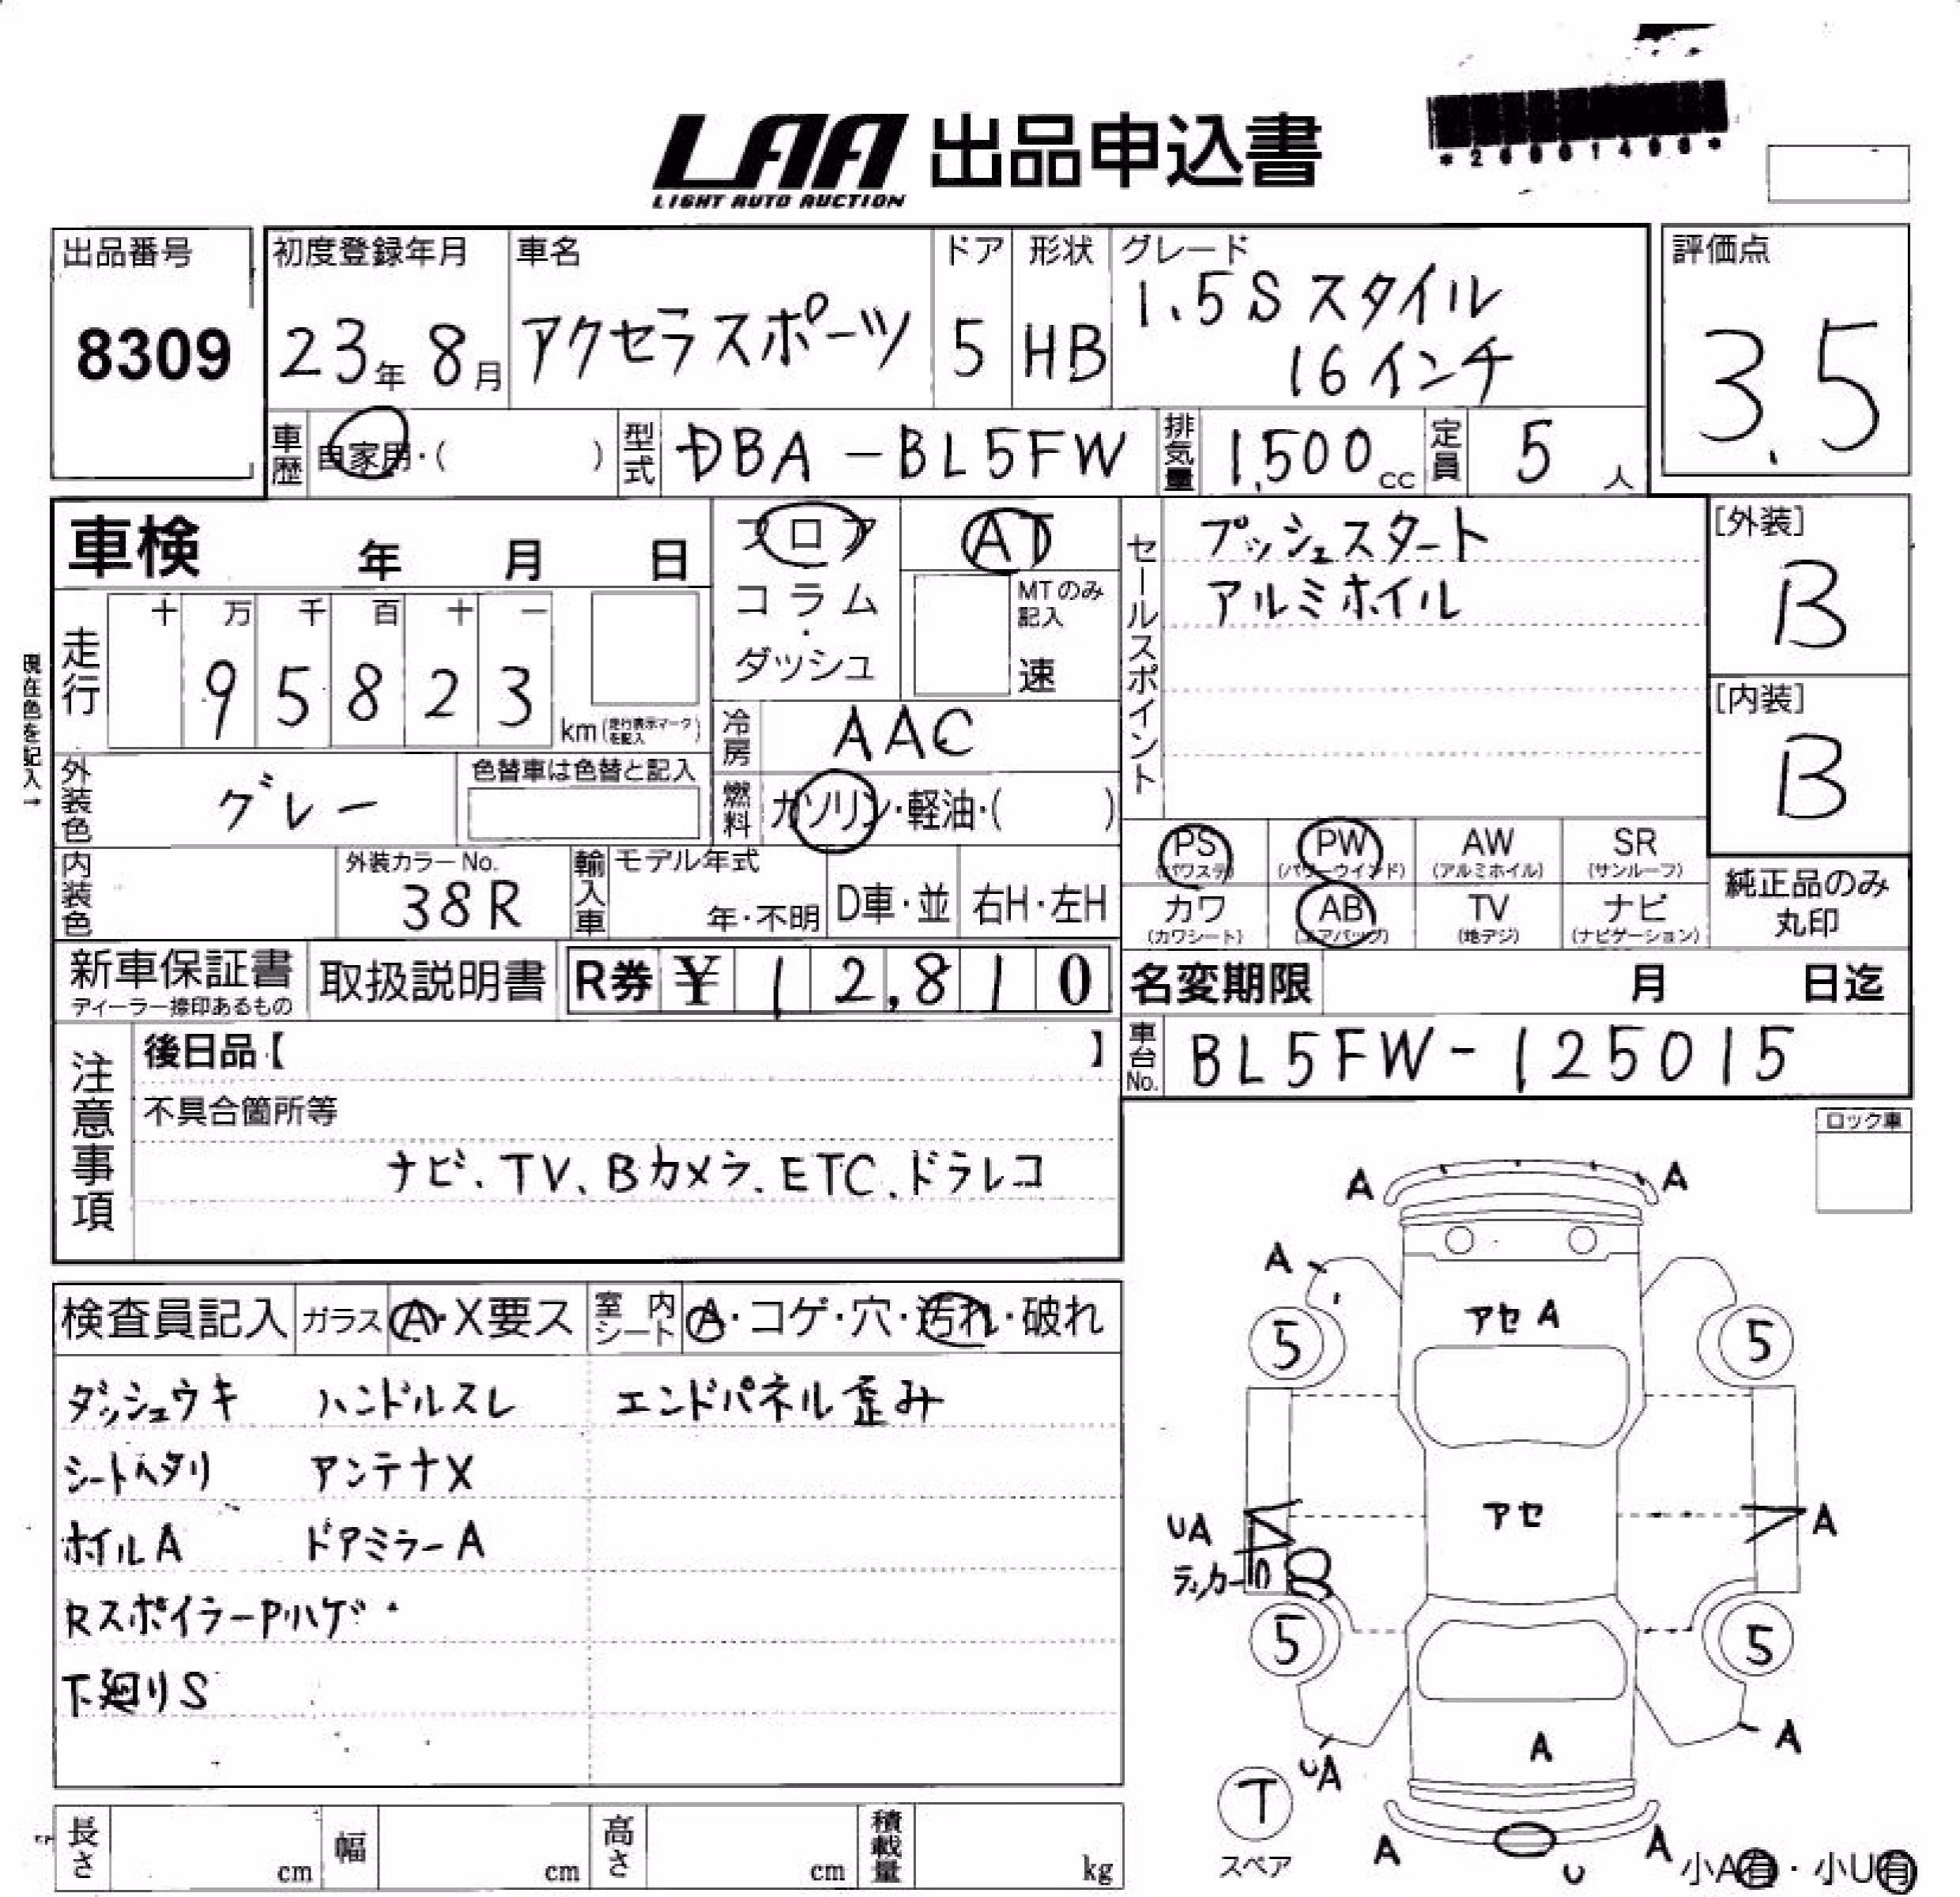 LAA 出品申込書
LIGHT AUTO AUCTION
出品番号
8309
初度登録年月
23年 8月
車名
アクセラスポーツ
ドア
5
形状
HB
グレード
1.5S スタイル
16インチ
評価点
3.5
車歴
自家用・( )
型式
DBA-BL5FW
排気量
1,500cc
定員
5人
車検 年 月 日
フロア
コラム
・
ダッシュ
AT
MTのみ
記入
速
セールスポイント
プッシュスタート
アルミホイル
[外装]
B
[内装]
B
現在色を記入→
走行
十 万 千 百 十 一
9 5 8 2 3
km(走行表示マークを記入)
冷房
AAC
外装色
グレー
色替車は色替と記入
燃料
ガソリン・軽油・( )
内装色
外装カラーNo.
38R
輸入車
モデル年式
年・不明
D車・並
右H・左H
PS
(パワステ)
PW
(パワーウインド)
AW
(アルミホイル)
SR
(サンルーフ)
カワ
(カワシート)
AB
(エアバッグ)
TV
(地デジ)
ナビ
(ナビゲーション)
純正品のみ
丸印
新車保証書
ディーラー捺印あるもの
取扱説明書
R券 ¥ 12,810
名変期限 月 日迄
車台No.
BL5FW-125015
注意事項
後日品【 】
不具合箇所等
ナビ、TV、Bカメラ、ETC、ドラレコ
ロック車
検査員記入
ガラス
A・X要ス
室内
シート
A・コゲ・穴・汚れ・破れ
ダッシュウキ ハンドルスレ エンドパネル歪み
シートヘタリ アンテナX
ホイルA ドアミラーA
RスポイラーPハゲ
下廻りS
A A
A
アセA
5 5
アセ
UA
A
5 5
A
UA
A
T
スペア
A A
U
小A有・小U有
長さ cm
幅 cm
高さ cm
積載量 kg